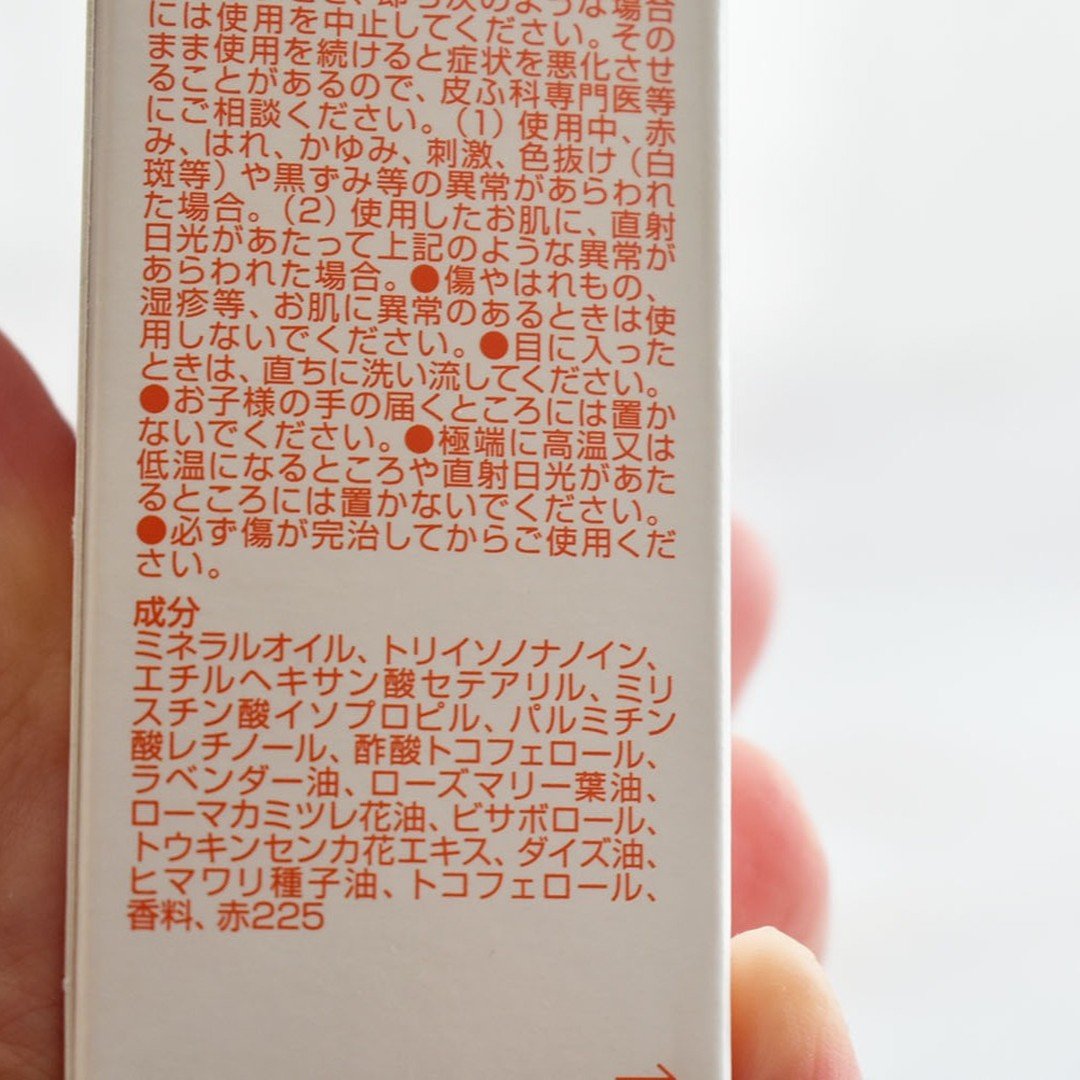 次のような場合
には使用を中止してください。その
まま使用を続けると症状を悪化させ
ることがあるので、皮ふ科専門医等
にご相談ください。（1）使用中、赤
み、はれ、かゆみ、刺激、色抜け（白
斑等）や黒ずみ等の異常があらわれ
た場合。（2）使用したお肌に、直射
日光があたって上記のような異常が
あらわれた場合。●傷やはれもの、
湿疹等、お肌に異常のあるときは使
用しないでください。●目に入った
ときは、直ちに洗い流してください。
●お子様の手の届くところには置か
ないでください。●極端に高温又は
低温になるところや直射日光があた
るところには置かないでください。
●必ず傷が完治してからご使用くだ
さい。
成分
ミネラルオイル、トリイソノナノイン、
エチルヘキサン酸セテアリル、ミリ
スチン酸イソプロピル、パルミチン
酸レチノール、酢酸トコフェロール、
ラベンダー油、ローズマリー葉油、
ローマカミツレ花油、ビサボロール、
トウキンセンカ花エキス、ダイズ油、
ヒマワリ種子油、トコフェロール、
香料、赤225